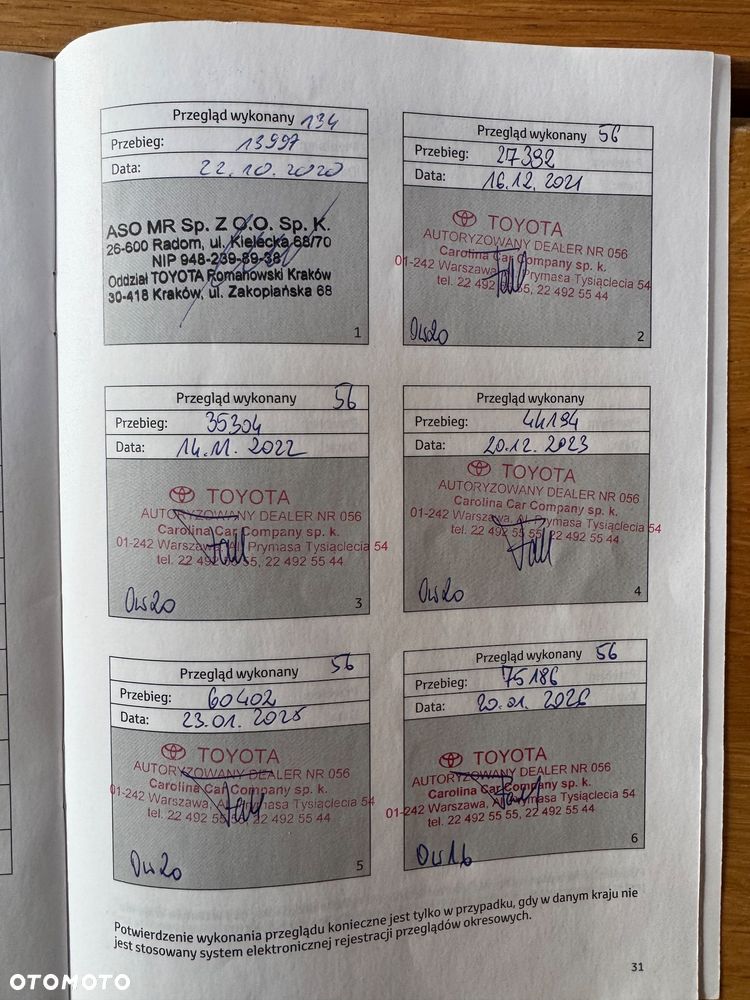 Przegląd wykonany 134
Przebieg: 13997
Data: 22.10.2020
ASO MR Sp. Z O.O. Sp. K.
26-600 Radom, ul. Kielecka 68/70
NIP 948-239-89-38
Oddział TOYOTA Romanowski Kraków
30-418 Kraków, ul. Zakopiańska 68
1
Przegląd wykonany 56
Przebieg: 27392
Data: 16.12.2021
TOYOTA
AUTORYZOWANY DEALER NR 056
Carolina Car Company sp. k.
01-242 Warszawa, Al. Prymasa Tysiąclecia 54
tel. 22 492 55 55, 22 492 55 44
0w20
2
Przegląd wykonany 56
Przebieg: 35304
Data: 14.11.2022
TOYOTA
AUTORYZOWANY DEALER NR 056
Carolina Car Company sp. k.
01-242 Warszawa, Al. Prymasa Tysiąclecia 54
tel. 22 492 55 55, 22 492 55 44
0w20
3
Przegląd wykonany
Przebieg: 44194
Data: 20.12.2023
TOYOTA
AUTORYZOWANY DEALER NR 056
Carolina Car Company sp. k.
01-242 Warszawa, Al. Prymasa Tysiąclecia 54
tel. 22 492 55 55, 22 492 55 44
0w20
4
Przegląd wykonany 56
Przebieg: 60402
Data: 23.01.2025
TOYOTA
AUTORYZOWANY DEALER NR 056
Carolina Car Company sp. k.
01-242 Warszawa, Al. Prymasa Tysiąclecia 54
tel. 22 492 55 55, 22 492 55 44
0w20
5
Przegląd wykonany 56
Przebieg: 75186
Data: 20.01.2026
TOYOTA
AUTORYZOWANY DEALER NR 056
Carolina Car Company sp. k.
01-242 Warszawa, Al. Prymasa Tysiąclecia 54
tel. 22 492 55 55, 22 492 55 44
0w16
6
Potwierdzenie wykonania przeglądu konieczne jest tylko w przypadku, gdy w danym kraju nie
jest stosowany system elektronicznej rejestracji przeglądów okresowych.
31
OTOMOTO